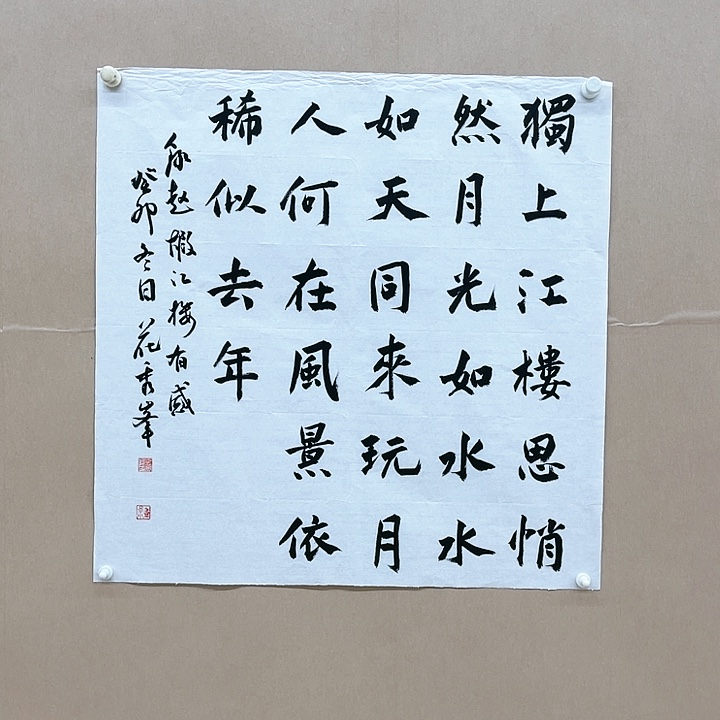 獨上江樓思悄
然月光如水水
如天同來玩月
人何在風景依
稀似去年
錄趙嘏江樓有感
癸卯冬日花秀峯